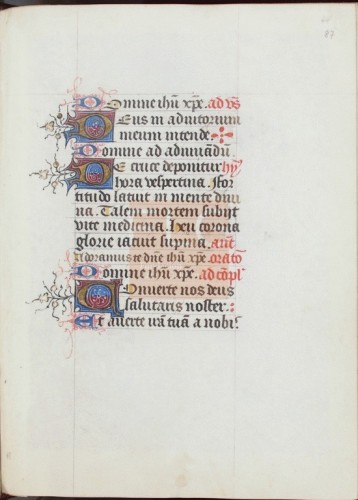 87
Domine ihu xpe. ad vs
Deus in adiutorium
meum intende
Domine ad adiuuādū
De cruce deponitur hy
hora vespertina. For
titudo latuit in mente diui
na. Talem mortem subijt
vite medicina. Heu corona
glorie iacuit supina. añt
Adoramus te dñe ihu xpe. oratō
Domine ihu xpe. ad cōpl
Conuerte nos deus
salutaris noster
Et auerte irā tuā a nobis